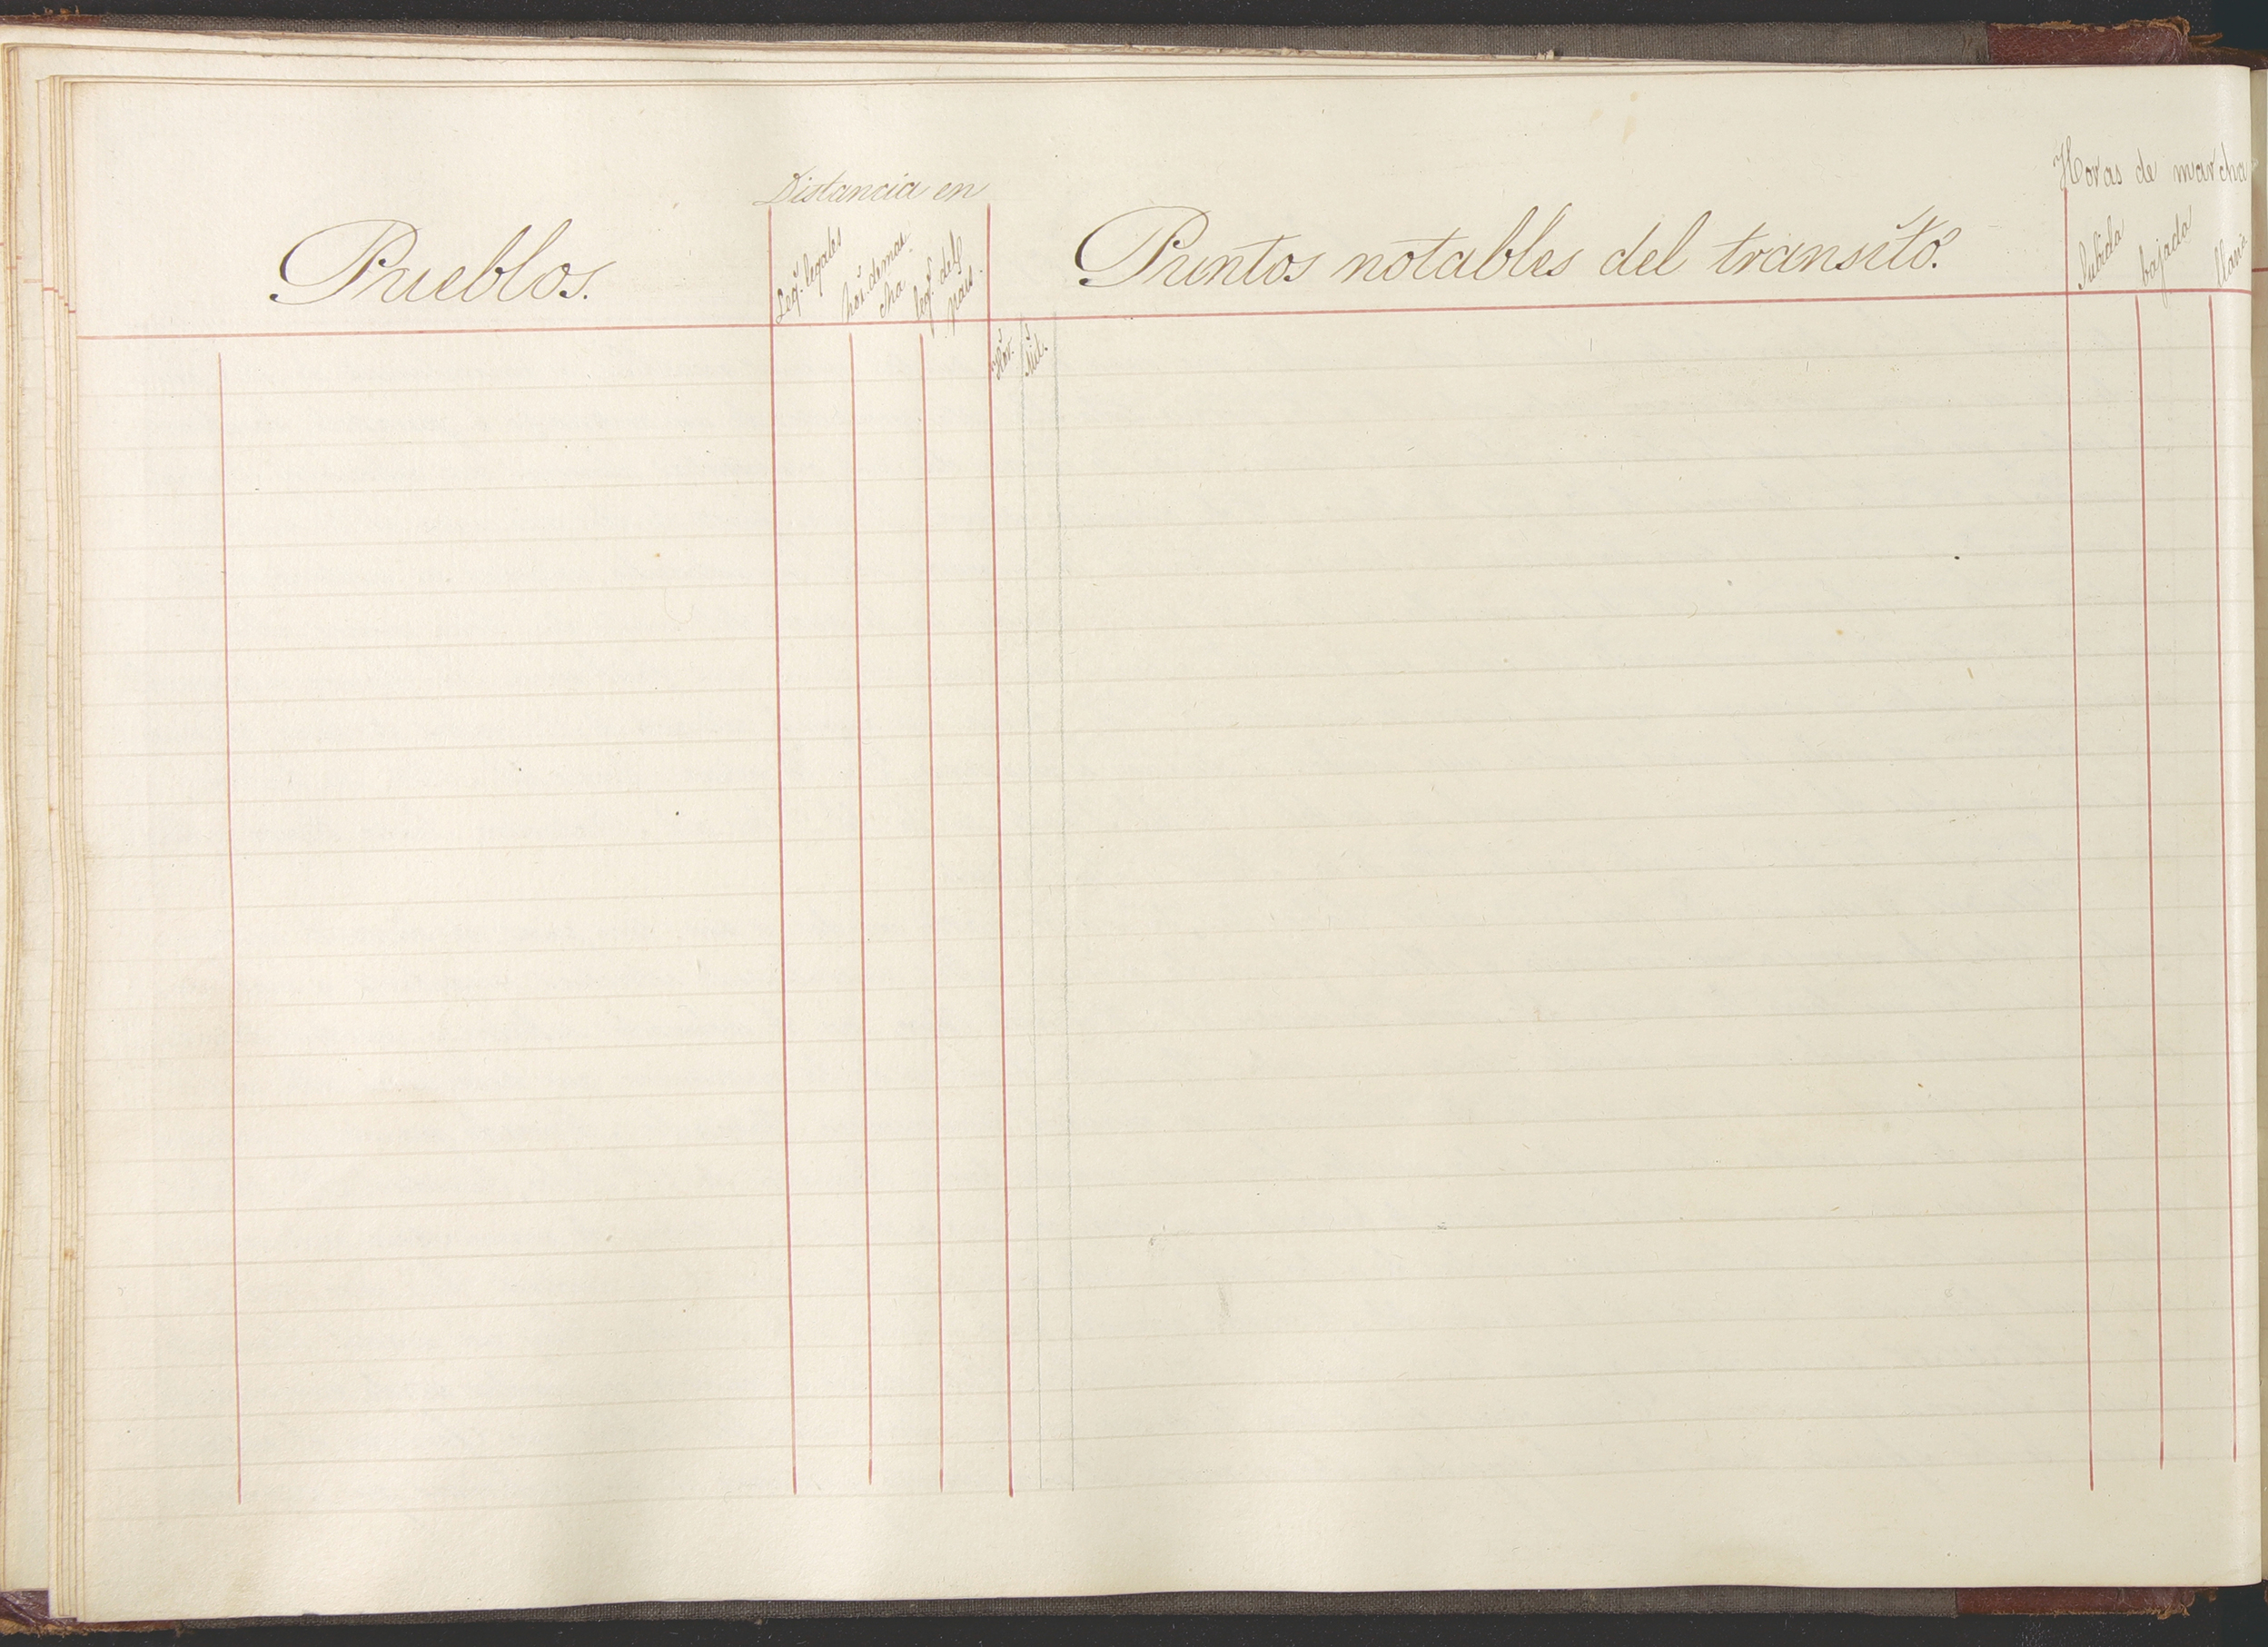 Pueblos.
Distancia en
Leg.s legales
hor.s de mar-
cha
leg.s del
pais.
Hor.s
Mil.s
Puntos notables del transito.
Horas de marcha
Subida
bajada
llano